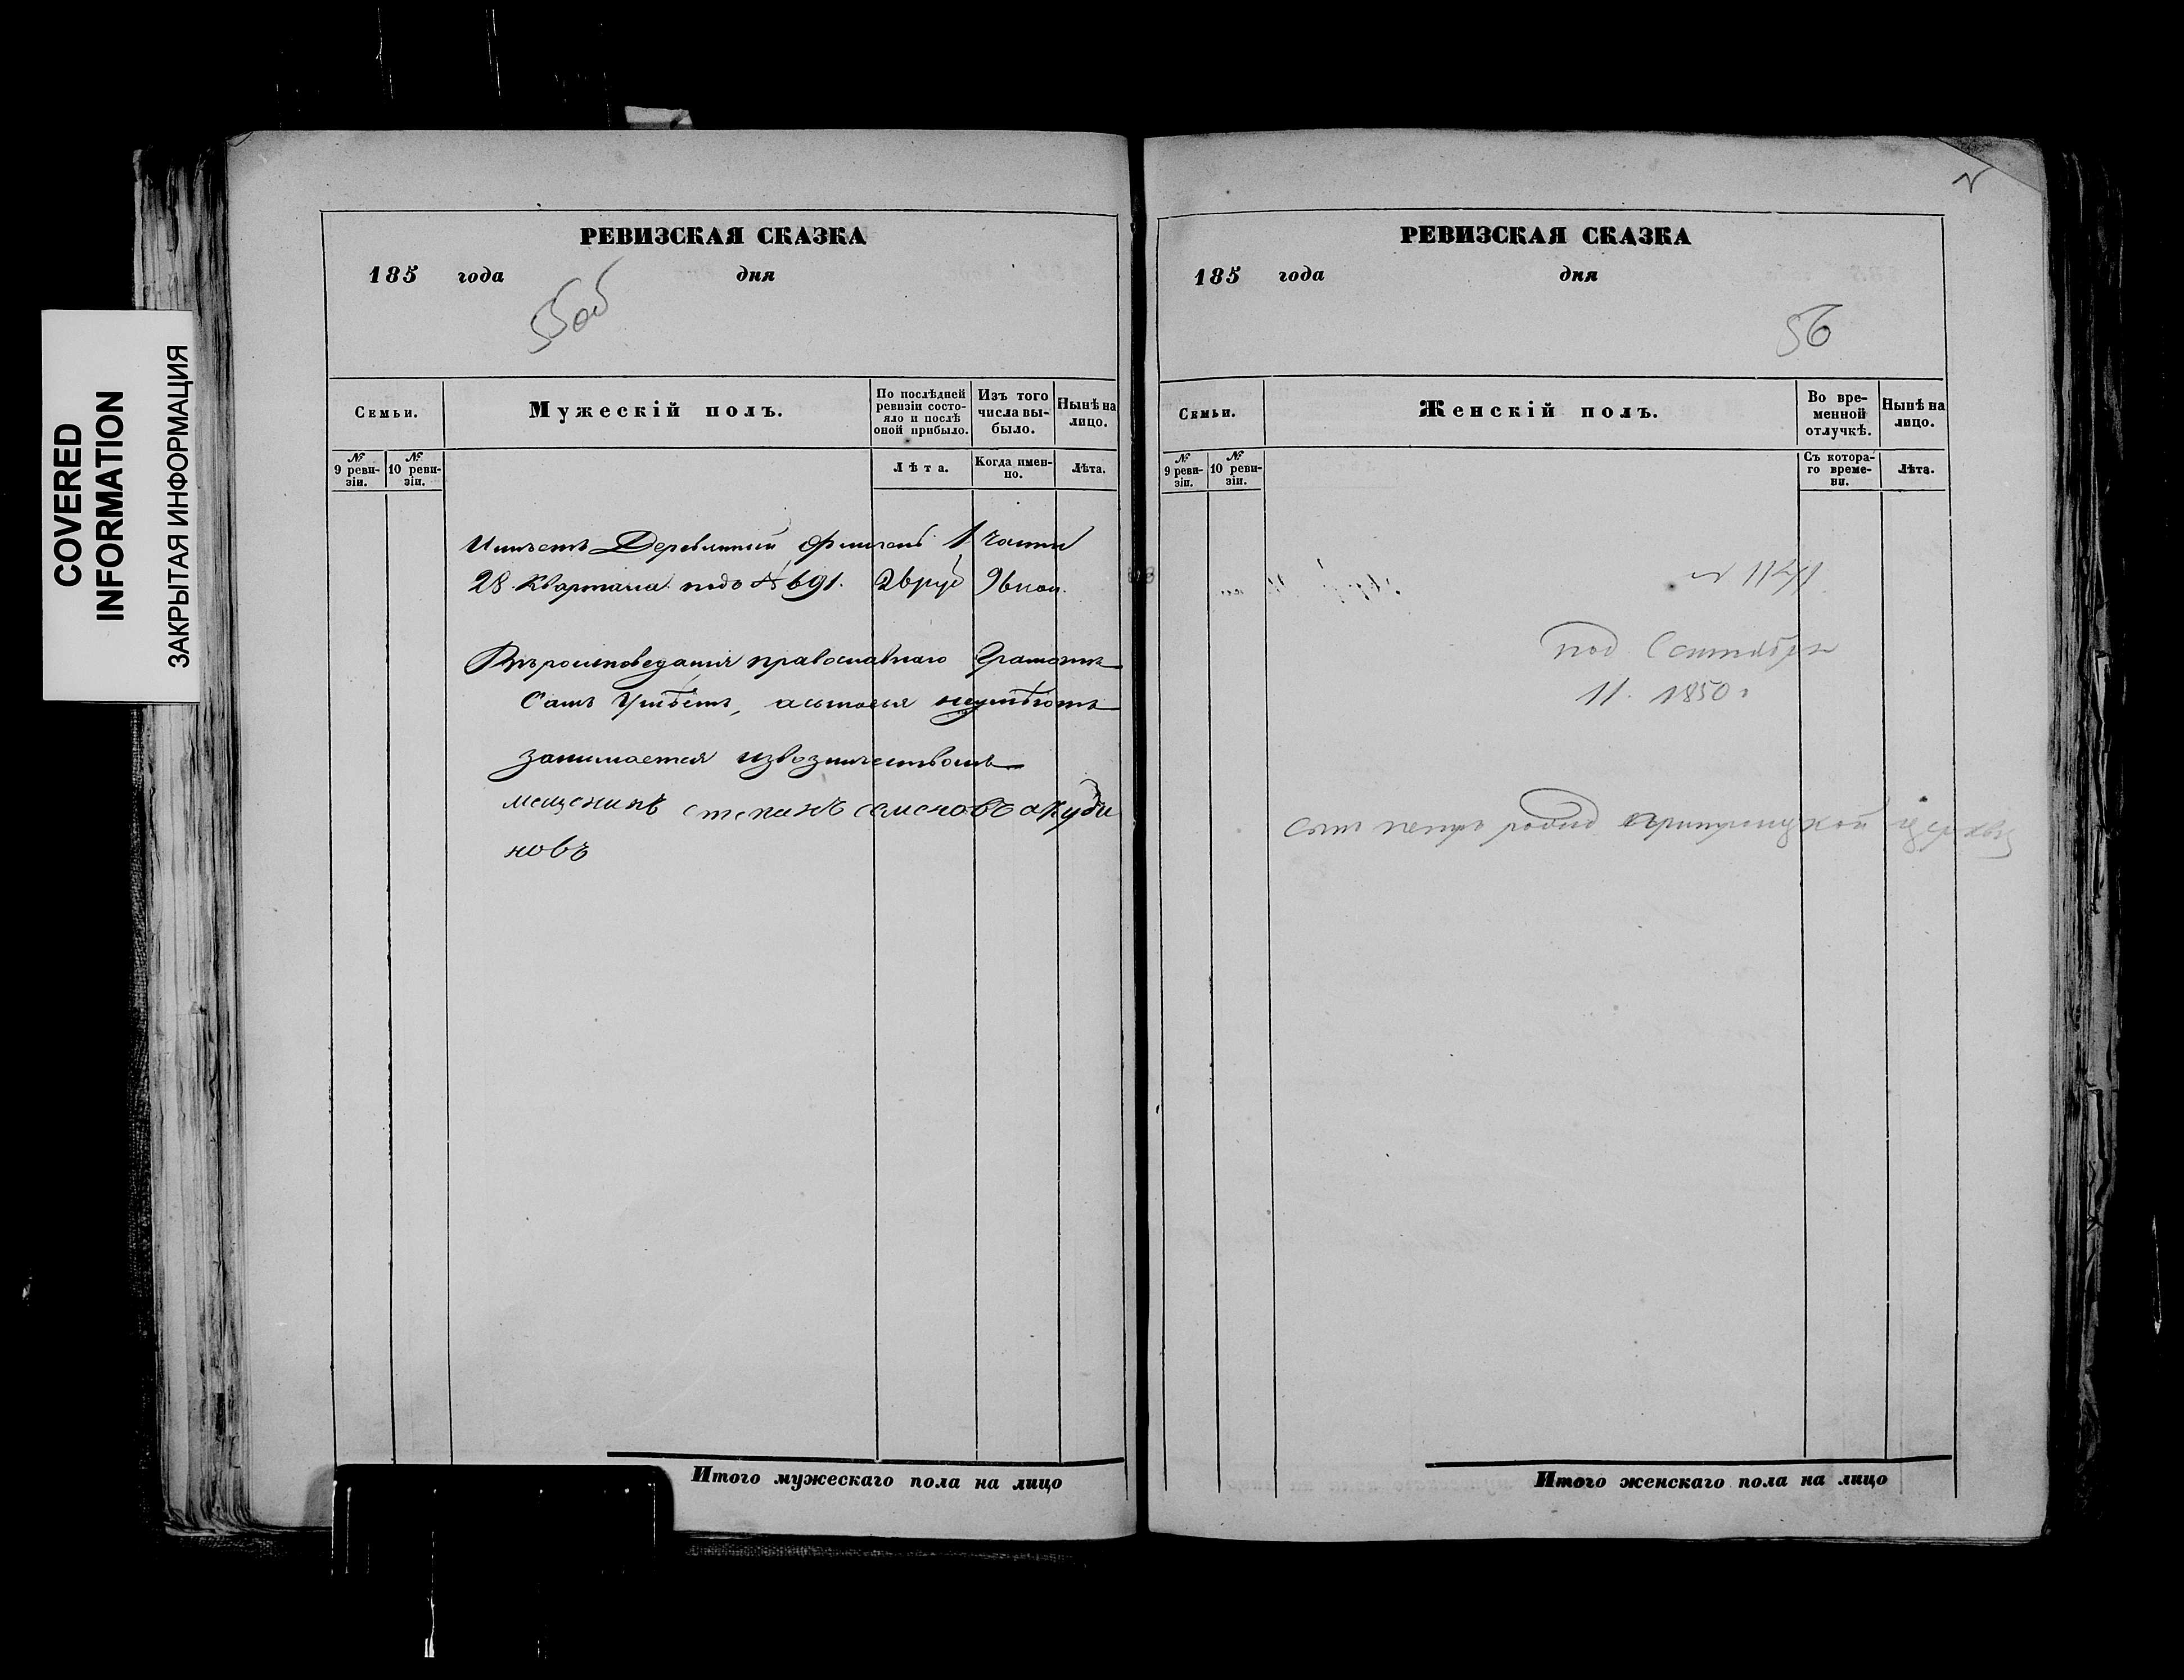 COVERED
INFORMATION
ЗАКРЫТАЯ ИНФОРМАЦИЯ
РЕВИЗСКАЯ СКАЗКА
185 года дня
55об
Семьи.
Мужескій полъ.
По послѣдней ревизіи состояло и послѣ оной прибыло.
Изъ того числа выбыло.
Нынѣ на лицо.
№ 9 ревизіи.
№ 10 ревизіи.
Лѣта.
Когда именно.
Лѣта.
Имѣетъ Деревянный флигель 1 части
28 Квартала подъ № 691. 26 руб 96 коп.
Вѣроисповеданія православнаго Грамотѣ
Самъ Умѣетъ, а сыновья неумѣютъ
занимается извозничествомъ
мещенинъ степанъ семеновъ акуди
новъ
РЕВИЗСКАЯ СКАЗКА
185 года дня
56
Семьи.
Женскій полъ.
Во временной отлучкѣ.
Нынѣ на лицо.
№ 9 ревизіи.
№ 10 ревизіи.
Съ котораго времени.
Лѣта.
под Сентября
11. 1850 г
сынъ петръ родил церквы
Итого мужескаго пола на лицо
Итого женскаго пола на лицо